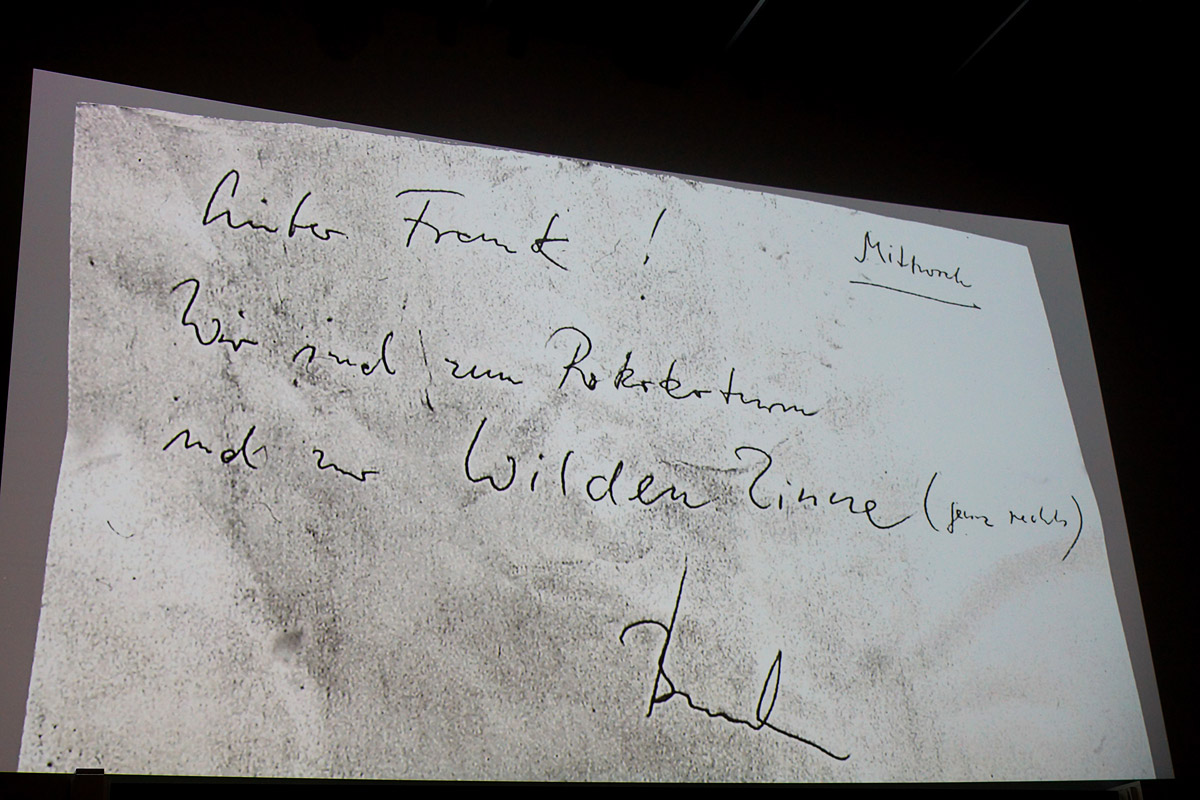 Lieber Frank! Mittwoch
Wir sind zum Rokokoturm
und zur Wilden Zinne (ganz rechts)
Bernd